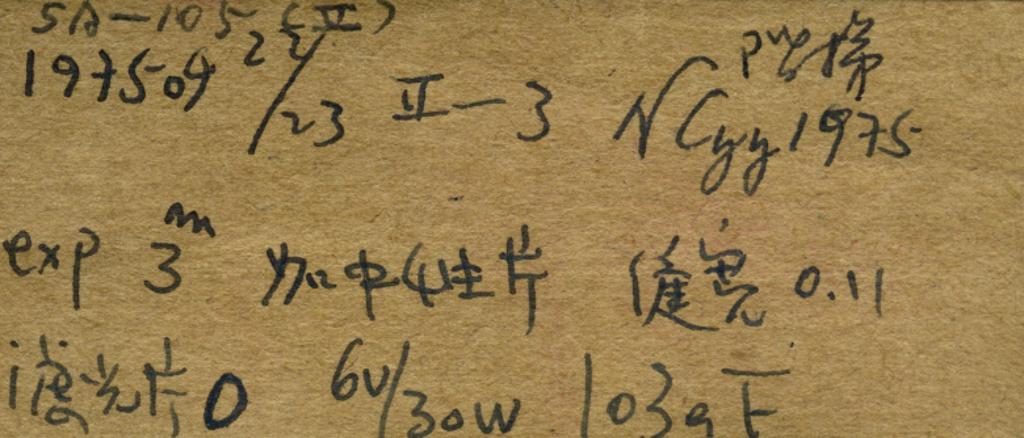 SA-105 (Ⅱ)
197504 22/23 Ⅱ-3 NCyy1975
exp 3m 加中性片 缝宽 0.11
滤光片0 6V/30W 103aF